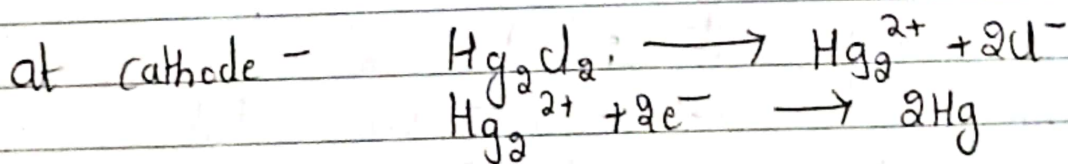 at cathode - Hg₂Cl₂ ⟶ Hg₂²⁺ + 2Cl⁻
Hg₂²⁺ + 2e⁻ ⟶ 2Hg